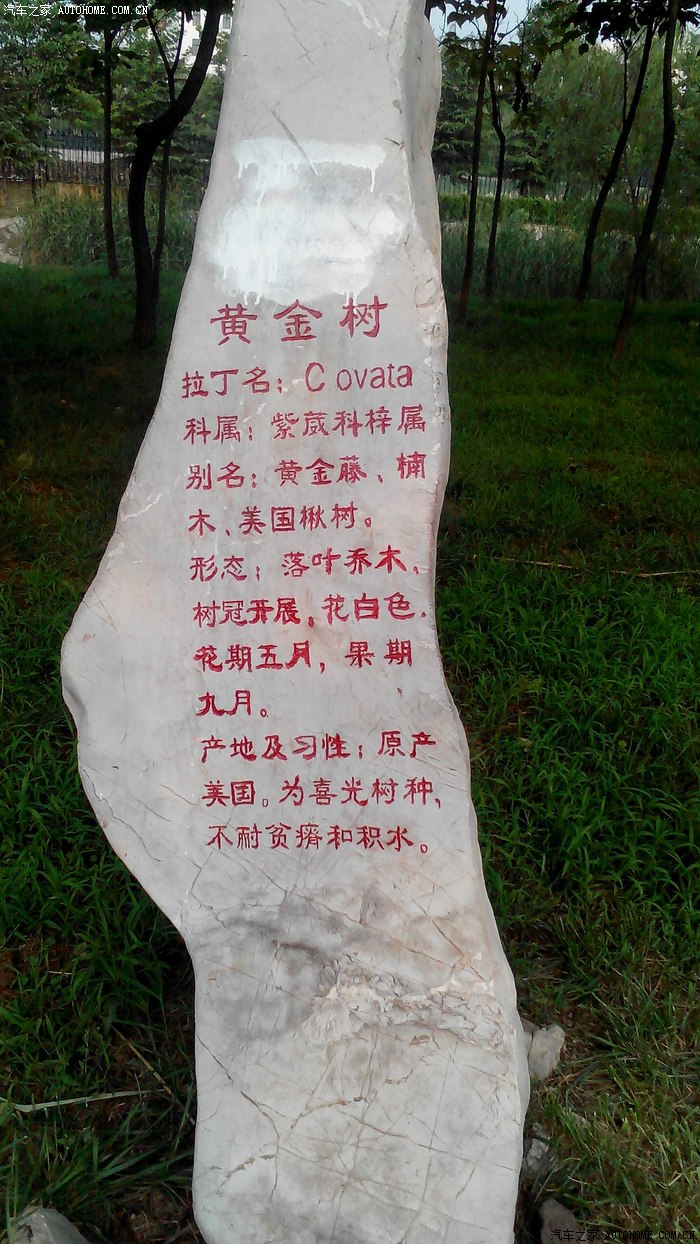 汽车之家 AUTOHOME.COM.CN
黄金树
拉丁名：C ovata
科属：紫葳科梓属
别名：黄金藤、楠
木、美国楸树。
形态：落叶乔木，
树冠开展。花白色．
花期五月，果期
九月。
产地及习性：原产
美国。为喜光树种，
不耐贫瘠和积水。
汽车之家 AUTOHOME.COM.CN